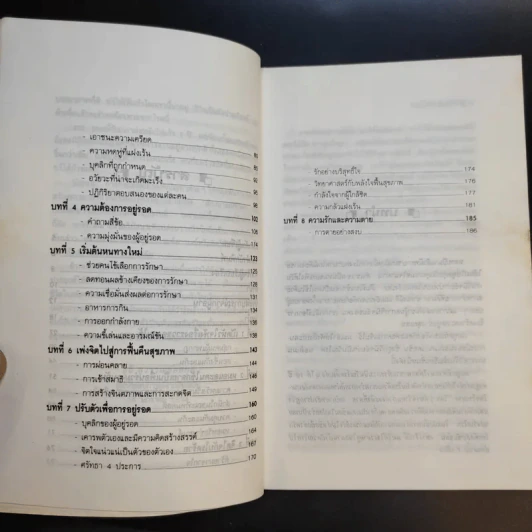 - เอาชนะความเครียด
- ความหดหู่ที่แฝงเร้น
- บุคลิกที่ถูกกำหนด
- อวัยวะที่น่าจะเกิดมะเร็ง
- ปฏิกิริยาตอบสนองของแต่ละคน
บทที่ 4 ความต้องการอยู่รอด
- คำถามสี่ข้อ
- ความมุ่งมั่นของผู้อยู่รอด
บทที่ 5 เริ่มต้นหนทางใหม่
- ช่วยคนไข้เลือกการรักษา
- ลดทอนผลข้างเคียงของการรักษา
- ความเชื่อมั่นส่งผลต่อการรักษา
- อาหารการกิน
- การออกกำลังกาย
- ความขี้เล่นและอารมณ์ขัน
บทที่ 6 เพ่งจิตไปสู่การฟื้นคืนสุขภาพ 143
- การผ่อนคลาย 144
- การเข้าสมาธิ
- การสร้างจินตภาพและการสะกดจิต
บทที่ 7 ปรับตัวเพื่อการอยู่รอด 160
- บุคลิกของผู้อยู่รอด 160
- เคารพตัวเองและมีความคิดสร้างสรรค์ 164
- จิตใจแน่วแน่เป็นตัวของตัวเอง 167
- ศรัทธา 4 ประการ 170
รักอย่างบริสุทธิ์ใจ 174
- วิทยาศาสตร์กับพลังใจฟื้นสุขภาพ 176
- กำลังใจจากผู้ใกล้ชิด 177
- ความกลัวแฝงเร้น 181
บทที่ 8 ความรักและความตาย 185
- การตายอย่างสงบ